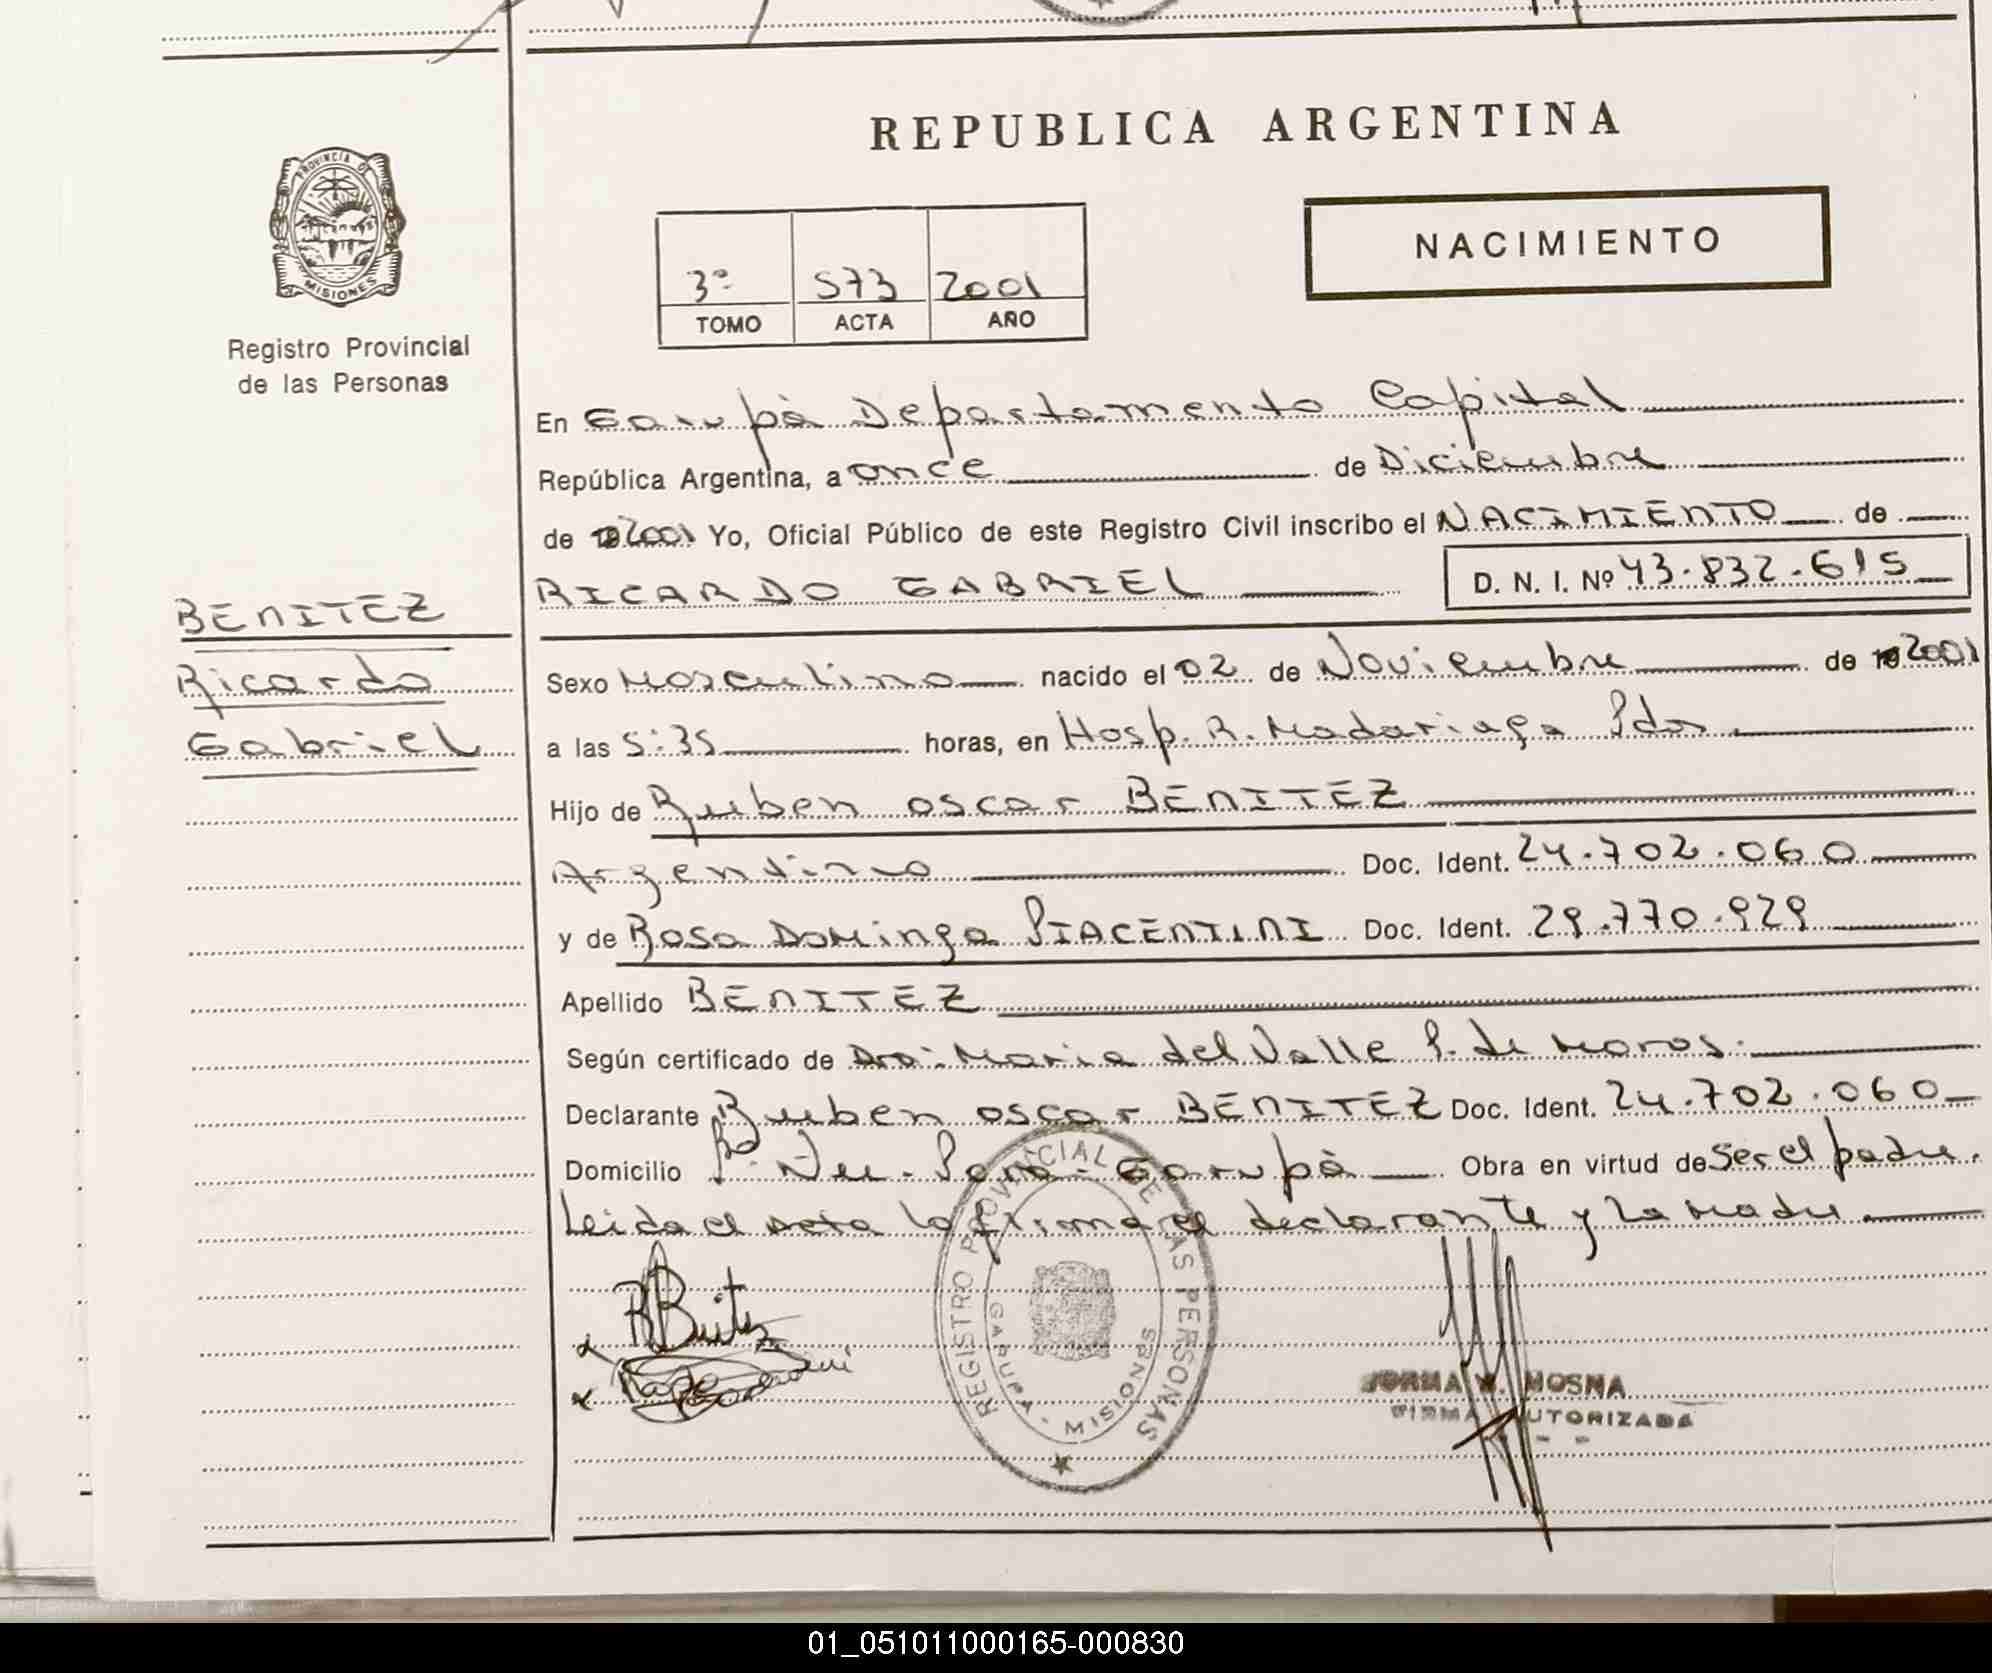 REPUBLICA ARGENTINA
PROVINCIA DE
MISIONES
Registro Provincial
de las Personas
NACIMIENTO
3º 573 2001
TOMO ACTA AÑO
En Garupà Departamento Capital
República Argentina, a once de Diciembre
de 2001 Yo, Oficial Público de este Registro Civil inscribo el NACIMIENTO de
RICARDO GABRIEL D. N. I. Nº 43.832.615
BENITEZ
Ricardo
Gabriel
Sexo Masculino nacido el 02 de Noviembre de 2001
a las 5:35 horas, en Hosp. R. Madariaga Pdas
Hijo de Ruben oscar BENITEZ
Argentino Doc. Ident. 24.702.060
y de Rosa Dominga PIACENTINI Doc. Ident. 29.770.929
Apellido BENITEZ
Según certificado de Dra: Maria del Valle P. de Moros.
Declarante Ruben oscar BENITEZ Doc. Ident. 24.702.060
Domicilio Garupà Obra en virtud de Ser el padre.
Leida el acta la firma el declarante y la madre.
REGISTRO PROVINCIAL DE LAS PERSONAS
GARUPA - MISIONES
NORMA MOSNA
FIRMA AUTORIZADA
01_051011000165-000830